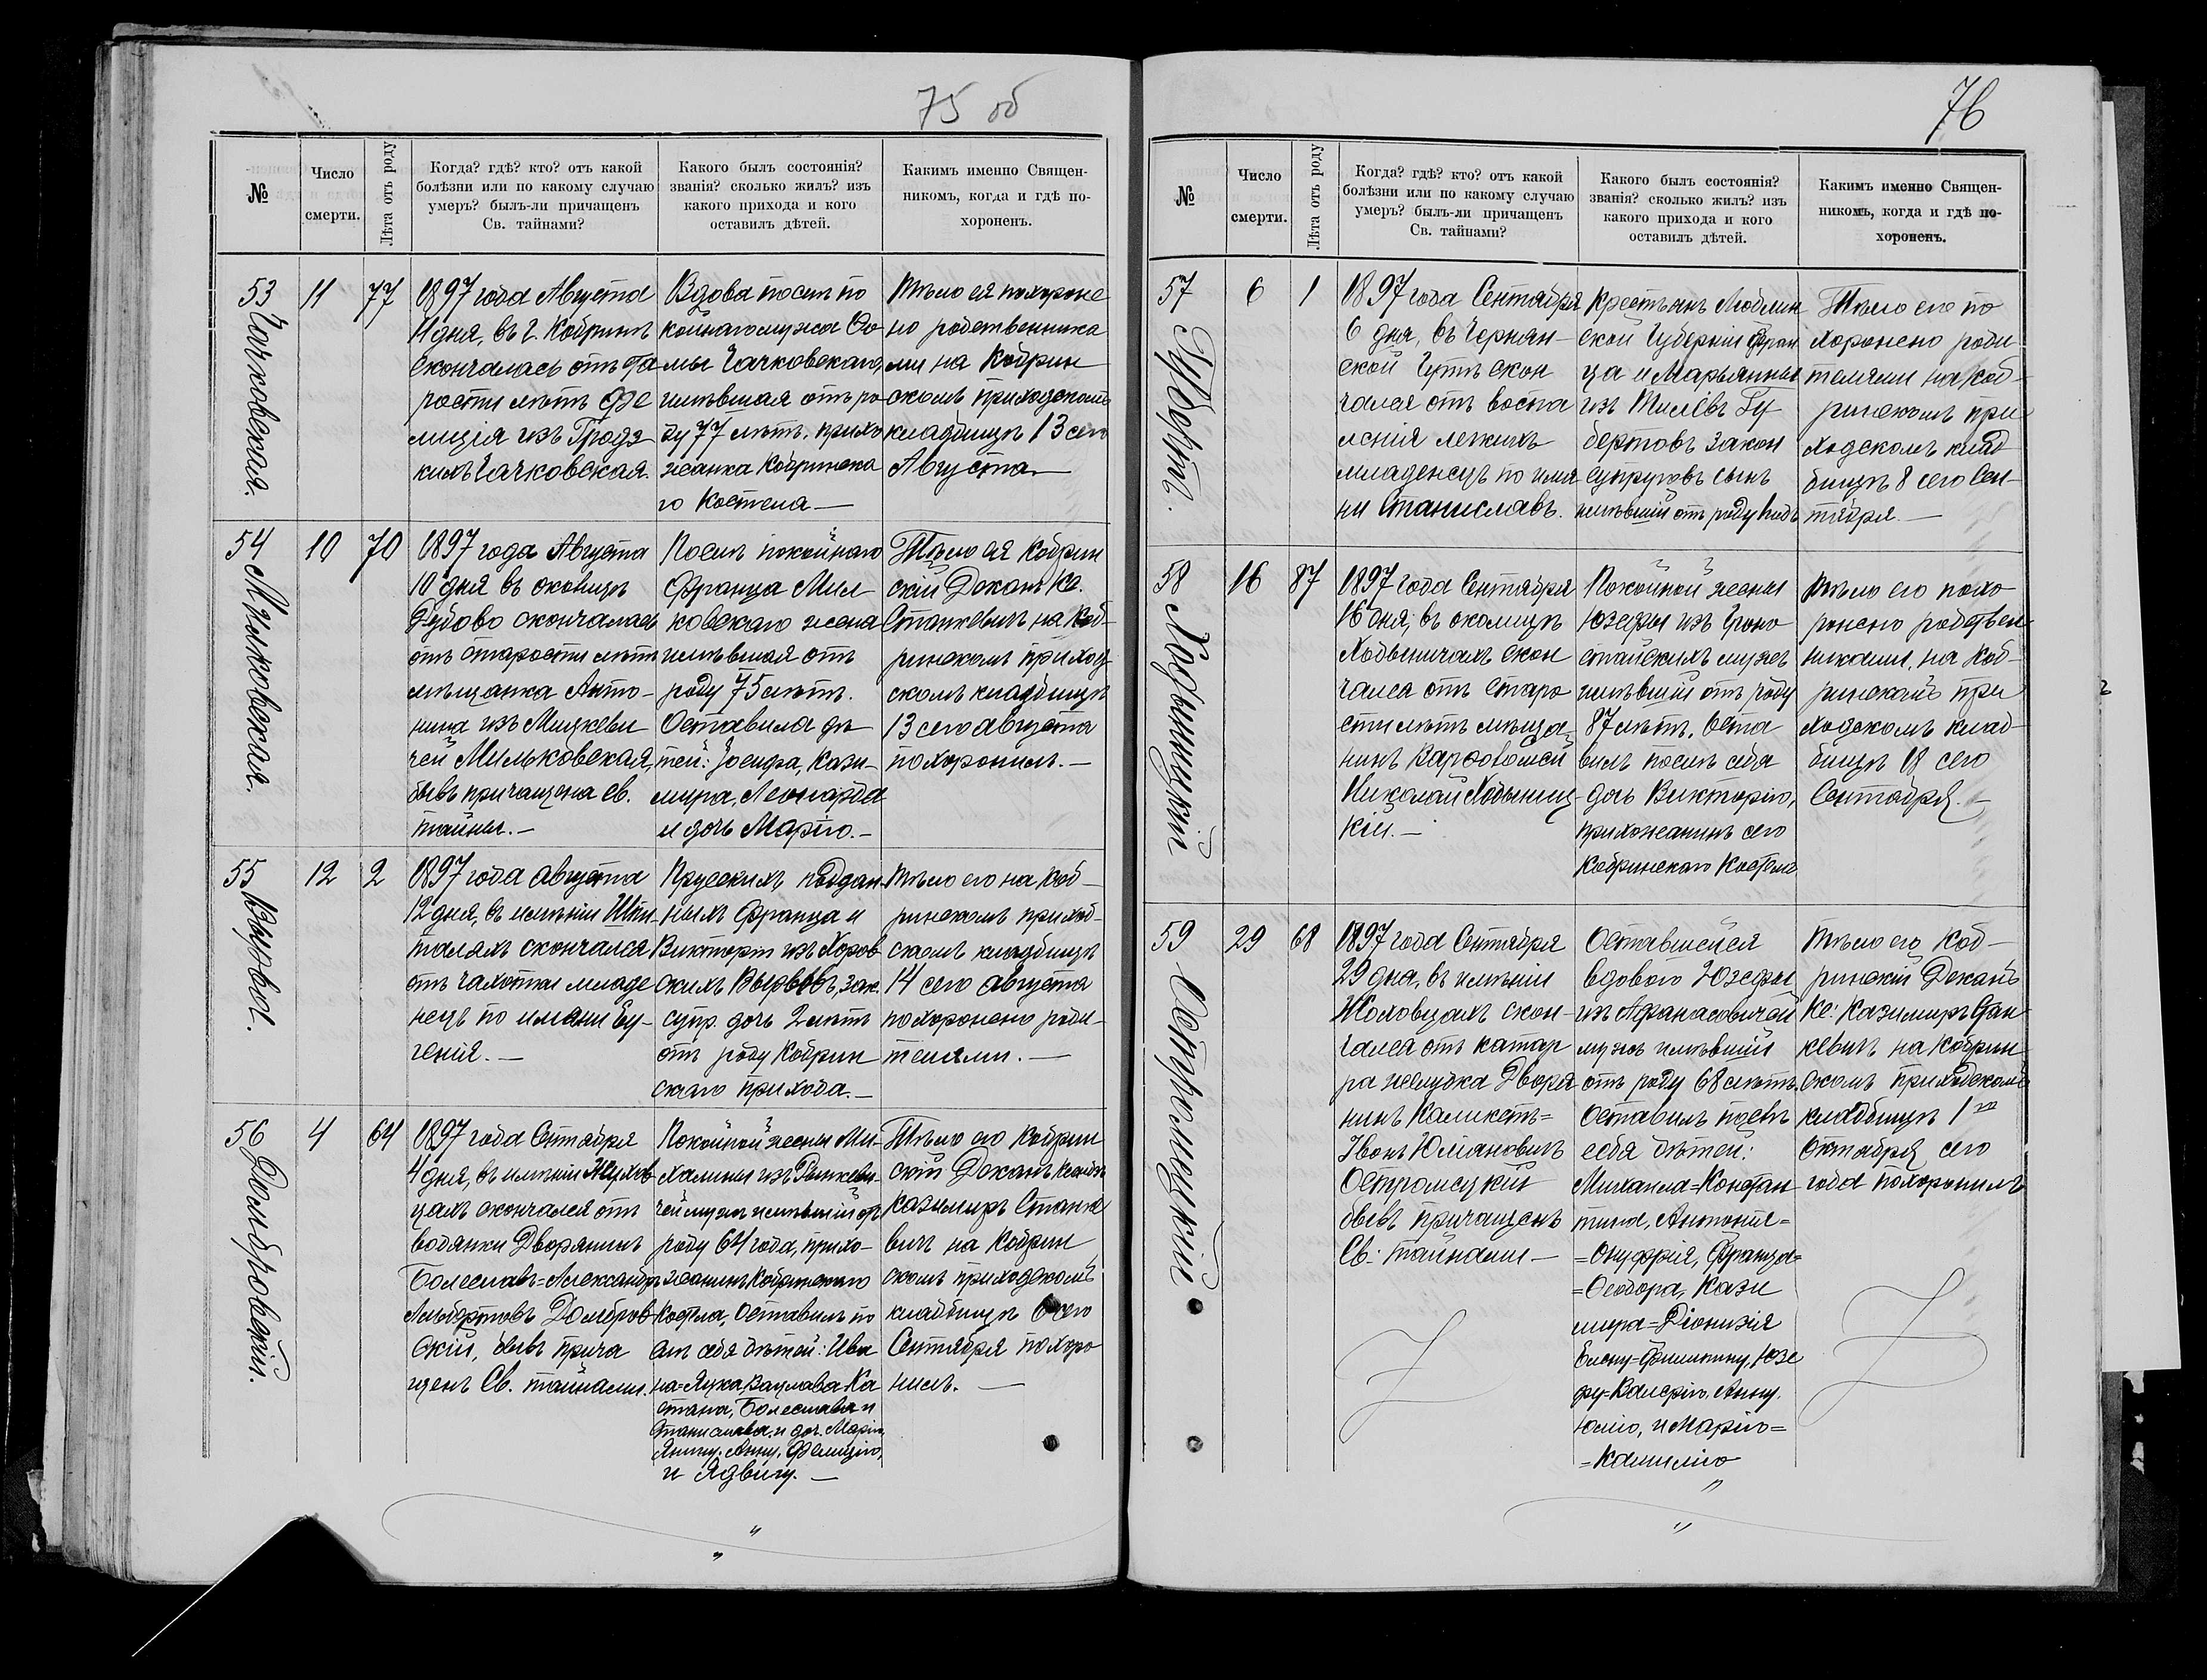 75 об
№
Число
смерти.
Лѣта отъ роду
Когда? гдѣ? кто? отъ какой
болѣзни или по какому случаю
умеръ? былъ-ли причащенъ
Св. тайнами?
Какого былъ состоянія?
званія? сколько жилъ? изъ
какого прихода и кого
оставилъ дѣтей.
Какимъ именно Священ-
никомъ, когда и гдѣ по-
хороненъ.
53
Чачковская.
11
77
1897 года Августа
11 дня, въ г. Кобринѣ
скончалась отъ ста
рости лѣтъ Фе
лиція изъ
кихъ Чачковская.
Вдова послѣ по
койнаго мужа Ѳо
мы Чачковскаго,
имѣвшая отъ ро
ду 77 лѣтъ. прихо
жанка Кобринска
го Костела —
Тѣло ея похороне
но родственника
ми на Кобрин
скомъ приходскомъ
кладбищѣ 13 сего
Августа —
54
Мильковская.
10
70
1897 года Августа
10 дня въ околицѣ
скончалась
отъ старости лѣтъ
мѣщанка Анто-
нина изъ Мицкеви
чей Мильковская,
бывъ причащена св.
тайны. —
Послѣ покойнаго
Франца Мил
ковскаго жена
имѣвшая отъ
роду 75 лѣтъ.
Оставила дѣ
тей: Іосифа, Кази-
мира, Леонарда
и дочь Марію. —
Тѣло ея Кобрин
скій Деканъ Кс.
Станкевичъ на Коб-
ринскомъ приход
скомъ кладбищѣ
13 сего августа
похоронилъ. —
55
12
2
1897 года августа
12 дня, въ имѣніи Шпи
таляхъ скончался
отъ чахотки младе
нецъ по имени Ев-
генія. —
Прусскихъ поддан-
ныхъ Франца и
Викторіи изъ Хоров
скихъ зак.
супр. дочь 2 лѣтъ
отъ роду Кобрин
скаго прихода. —
Тѣло его на Коб-
ринскомъ приход-
скомъ кладбищѣ
14 сего августа
похоронено роди-
телями. —
56
Домбровскій.
4
64
1897 года Сентября
4 дня, въ имѣніи
цахъ скончался отъ
водянки Дворянинъ
Болеславъ=Александръ
Альбертовъ Домбров
скій, бывъ прича
щенъ Св. тайнами.
Покойной жены Ми-
халины изъ
чей мужъ имѣвшій отъ
роду 64 года, прихо-
жанинъ Кобринскаго
Костела, оставилъ по
слѣ себя дѣтей: Ива
на=Лука Вацлава Ка
етана, Болеслава и
Станислава, и доч. Марію
Янину, Анну, Фелицію,
и Ядвигу. —
Тѣло его Кобрин
скій Деканъ Ксендзъ
Казимиръ Станке
вичъ на Кобрин
скомъ приходскомъ
кладбищѣ 6 сего
Сентября похоро
нилъ. —
76
№
Число
смерти.
Лѣта отъ роду
Когда? гдѣ? кто? отъ какой
болѣзни или по какому случаю
умеръ? былъ-ли причащенъ
Св. тайнами?
Какого былъ состоянія?
званія? сколько жилъ? изъ
какого прихода и кого
оставилъ дѣтей.
Какимъ именно Священ-
никомъ, когда и гдѣ по-
хороненъ.
57
Губертъ.
6
1
1897 года Сентября
6 дня, въ Чернян-
ской Гутѣ скон
чался отъ воспа
ленія легкихъ
младенецъ по име
ни Станиславъ.
Крестьянъ Люблин
ской Губерніи Фран
ца и Марьянны
изъ Гу
бертовъ закон
супруговъ сынъ
имѣвшій отъ роду годъ
Тѣло его по
хоронено роди
телями на Коб-
ринскомъ при
ходскомъ клад
бищѣ 8 сего Сен-
тября. —
58
Ходыницкій
16
87
1897 года Сентября
16 дня, въ околицѣ
Ходыничахъ скон
чался отъ старо
сти лѣтъ мѣща-
нинъ Варфоломей
Николай Ходыниц-
кій. —
Покойной жены
Юзефы изъ Гроно
стайскихъ мужъ
имѣвшій отъ роду
87 лѣтъ. Оста
вилъ послѣ себя
дочь Викторію,
прихожанинъ сего
Кобринскаго Костела
Тѣло его похо
ронено родствен
никами, на Коб-
ринскомъ при
ходскомъ клад-
бищѣ 18 сего
Сентября. —
59
Остромецкій
29
68
1897 года Сентября
29 дня, въ имѣніи
Жоловцахъ скон-
чался отъ катар
ра желудка Дворя
нинъ Каликстъ=
Иванъ Юліановичъ
Остромецкій
бывъ причащенъ
Св: тайнами —
Оставшейся
вдовою Юзефы
изъ Афанасовичей
мужъ имѣвшій
отъ роду 68 лѣтъ.
Оставилъ послѣ
себя дѣтей:
Михаила=Констан
тина, Антонія=
=Онуфрія, Франца=
=Ѳеодора, Кази
мира=Діонизія
Елену=Филипину, Юзе
фу=Валерію, Анну,
Юлію, и Марію=
=Камилію
Тѣло его Коб-
ринскій Деканъ
Кс: Казимиръ Стан
кевичъ на Кобрин
скомъ приходскомъ
кладбищѣ 1го
Октября сего
года похоронилъ